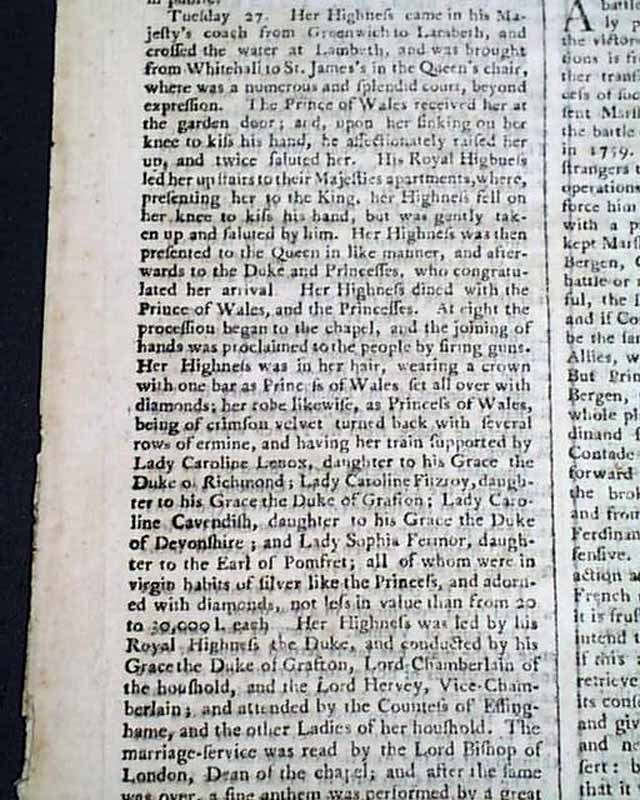 in public.
Tuesday 27. Her Highneſs came in his Ma-
jeſty's coach from Greenwich to Lambeth, and
croſſed the water at Lambeth, and was brought
from Whitehall to St. James's in the Queen's chair,
where was a numerous and ſplendid court, beyond
expreſſion. The Prince of Wales received her at
the garden door; and, upon her ſinking on her
knee to kiſs his hand, he affectionately raiſed her
up, and twice ſaluted her. His Royal Highneſs
led her up ſtairs to their Majeſties apartments, where,
preſenting her to the King, her Highneſs fell on
her knee to kiſs his hand, but was gently tak-
en up and ſaluted by him. Her Highneſs was then
preſented to the Queen in like manner, and after-
wards to the Duke and Princeſſes, who congratu-
lated her arrival Her Highneſs dined with the
Prince of Wales, and the Princeſſes. At eight the
proceſſion began to the chapel, and the joining of
hands was proclaimed to the people by firing guns.
Her Highneſs was in her hair, wearing a crown
with one bar as Princeſs of Wales ſet all over with
diamonds; her robe likewiſe, as Princeſs of Wales,
being of crimſon velvet turned back with ſeveral
rows of ermine, and having her train ſupported by
Lady Caroline Lenox, daughter to his Grace the
Duke of Richmond; Lady Caroline Fitzroy, daugh-
ter to his Grace the Duke of Grafton; Lady Caro-
line Cavendiſh, daughter to his Grace the Duke
of Devonſhire; and Lady Sophia Fermor, daugh-
ter to the Earl of Pomfret; all of whom were in
virgin habits of ſilver like the Princeſs, and adorn-
ed with diamonds, not leſs in value than from 20
to 30,000 l. each Her Highneſs was led by his
Royal Highneſs the Duke, and conducted by his
Grace the Duke of Grafton, Lord Chamberlain of
the houſhold, and the Lord Hervey, Vice-Cham-
berlain; and attended by the Counteſs of Effing-
hame, and the other Ladies of her houſhold. The
marriage-ſervice was read by the Lord Biſhop of
London, Dean of the chapel; and after the ſame
was over, a fine anthem was performed by a great
A battle
ly p
the victor
tions is fr
ther tranſ
ceſs of ſuc
ſent Marſ
the battle
in 1759.
ſtrangers t
operations
force him
with a p
kept Marſ
Bergen, C
battle or
ful, the
and if Co
be the ſam
Allies, w
But Prin
Bergen,
whole pl
dinand ſ
Contade
forward
the brok
and from
Ferdinan
fenſive.
action a
French
it is fruſ
intend t
if this
retrieve
its conſ
and giv
and ne
ſert: b
that it